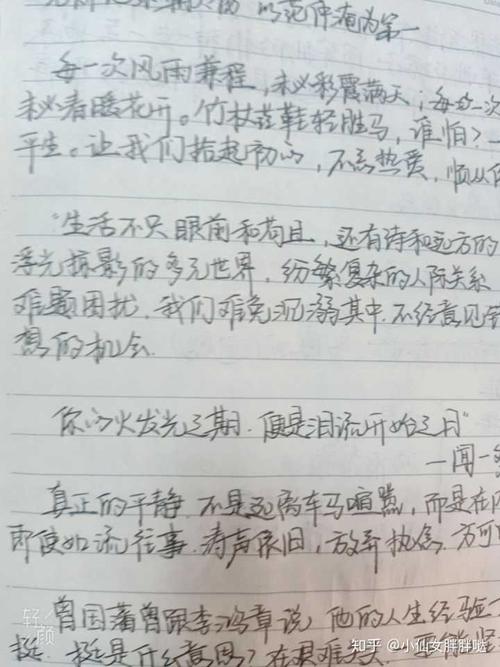 以范仲淹为第一
每一次风雨兼程，未必彩霞满天；每一次
未必春暖花开。竹杖芒鞋轻胜马，谁怕？一
平生。让我们拾起初心，不忘热爱，顺从
"生活不只眼前和苟且，还有诗和远方的
浮光掠影的多元世界，纷繁复杂的人际关系
难题困扰，我们难免沉溺其中，不经意见
想的机会
你的火发光之期，便是泪流开始之日"
一闻一
真正的平静，不是远离车马喧嚣，而是在
即使如流往事，涛声依旧，放弃执念，方可
曾国藩曾跟李鸿章说，他的人生经验
挺，挺是什么意思？在艰难
轻颜
知乎 @小仙女胖胖哒